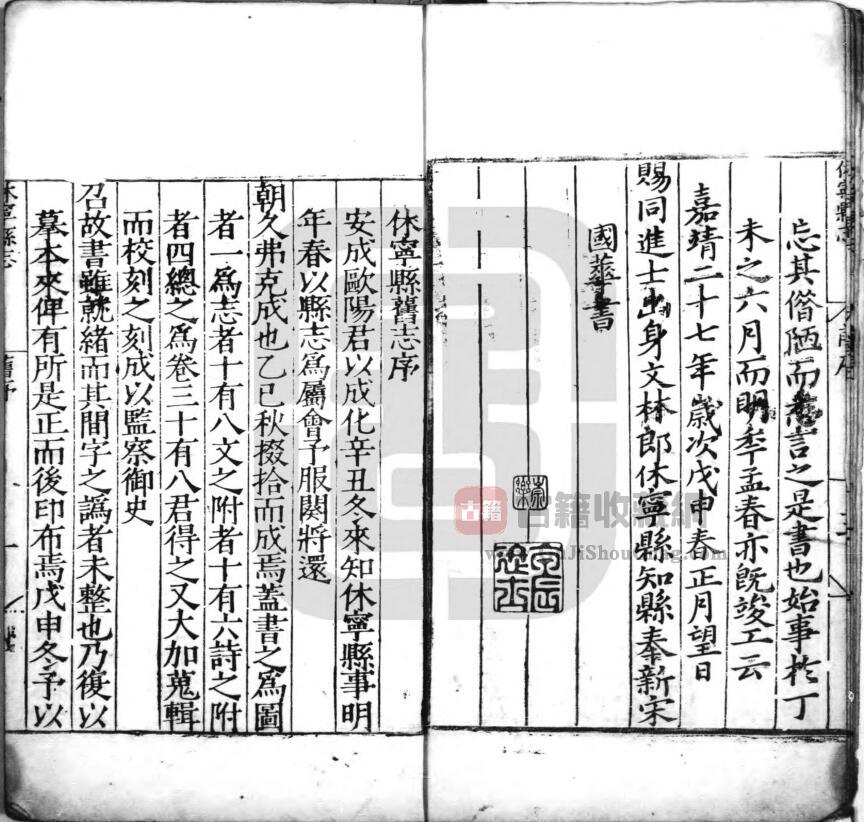 忘其僭陋而為言之是書也始事於丁
未之六月而明年孟春亦旣竣工云
嘉靖二十七年歲次戊申春正月望日
賜同進士出身文林郎休寧縣知縣奉新宋
國華書
休寧縣舊志序
安成歐陽君以成化辛丑冬來知休寧縣事明
年春以縣志爲屬會予服闋將還
朝久弗克成也乙巳秋掇拾而成焉蓋書之爲圖
者一爲志者十有八文之附者十有六詩之附
者四總之爲卷三十有八君得之又大加蒐輯
而校刻之刻成以監察御史
召故書雖就緒而其間字之譌者未整也乃復以
摹本來俾有所是正而後印布焉戊申冬予以
休寧縣志
舊序
一
古籍
古籍收藏網